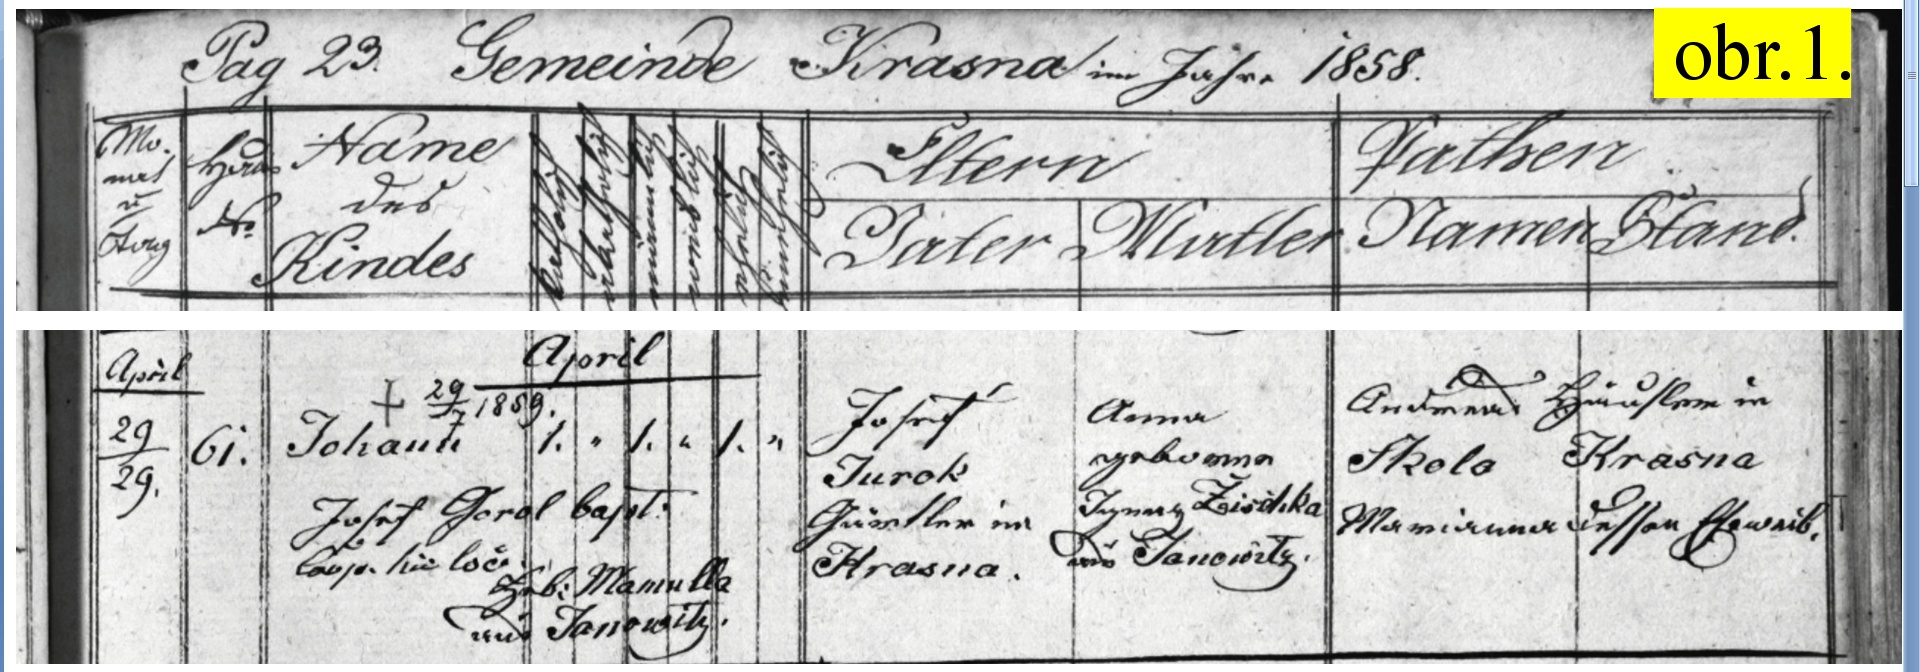 obr.1.
Pag 23. Gemeinde Krasna im Jahre 1858.
Mo-
nat
u
Tag
Haus
No
Name
des
Kindes
katholisch
akatholisch
männlich
weiblich
ehelich
unehelich
Eltern
Vater
Mutter
Pathen
Namen
Stand.
April
April
29/29.
61.
+ 29/7 1859.
Johann
1. „ 1. „ 1. „
Josef Gorol bapt:
Coop. hic loco.
Heb: Mamulla
aus Janowitz.
Josef
Jurok
Gärtler in
Krasna.
Anna
geborne
Ignaz Zischka
aus Janowitz.
Andreas
Skola
Marianna
Häusler in
Krasna
dessen Eheweib.